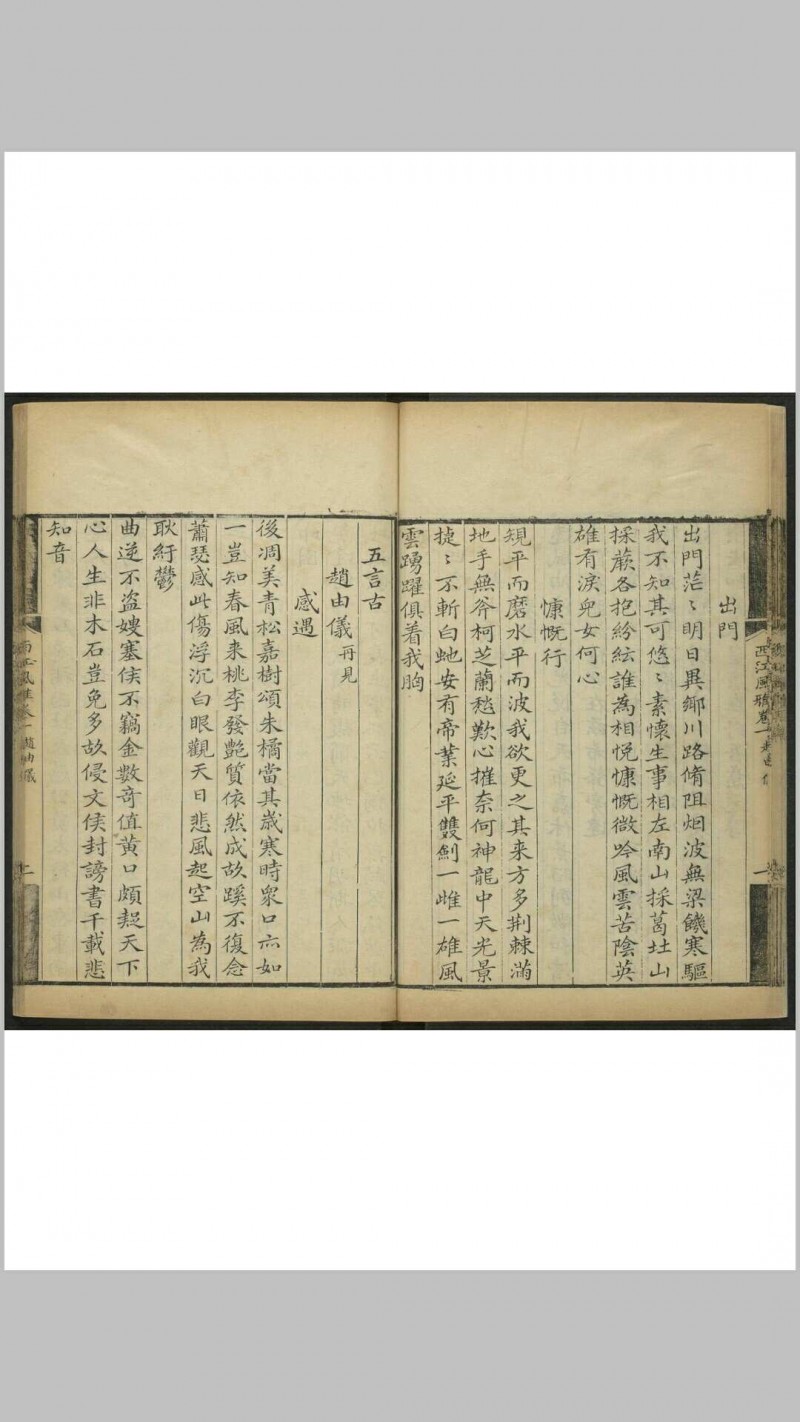 出門
出門茫〻明日異鄉川路脩阻烟波無梁饑寒驅
我不知其可悠〻素懷生事相左南山採葛北山
採蕨各抱紛紜誰為相悅慷慨微吟風雲苦陰英
雄有淚兒女何心
慷慨行
規平而磨水平而波我欲更之其来方多荆棘滿
地手無斧柯芝蘭愁歎心摧奈何神龍中天光景
捷〻不斬白虵安有帝業延平雙劍一雌一雄風
雲踴躍俱着我胸
五言古
趙由儀再見
感遇
後凋美青松嘉樹頌朱橘當其歲寒時衆口亦如
一豈知春風来桃李發艶質依然成故蹊不復念
蕭瑟感此傷浮沉白眼觀天日悲風起空山為我
耿紆鬱
曲逆不盜嫂塞侯不竊金數奇值黄口頗惑天下
心人生非木石豈免多故侵文侯封謗書千載悲
知音